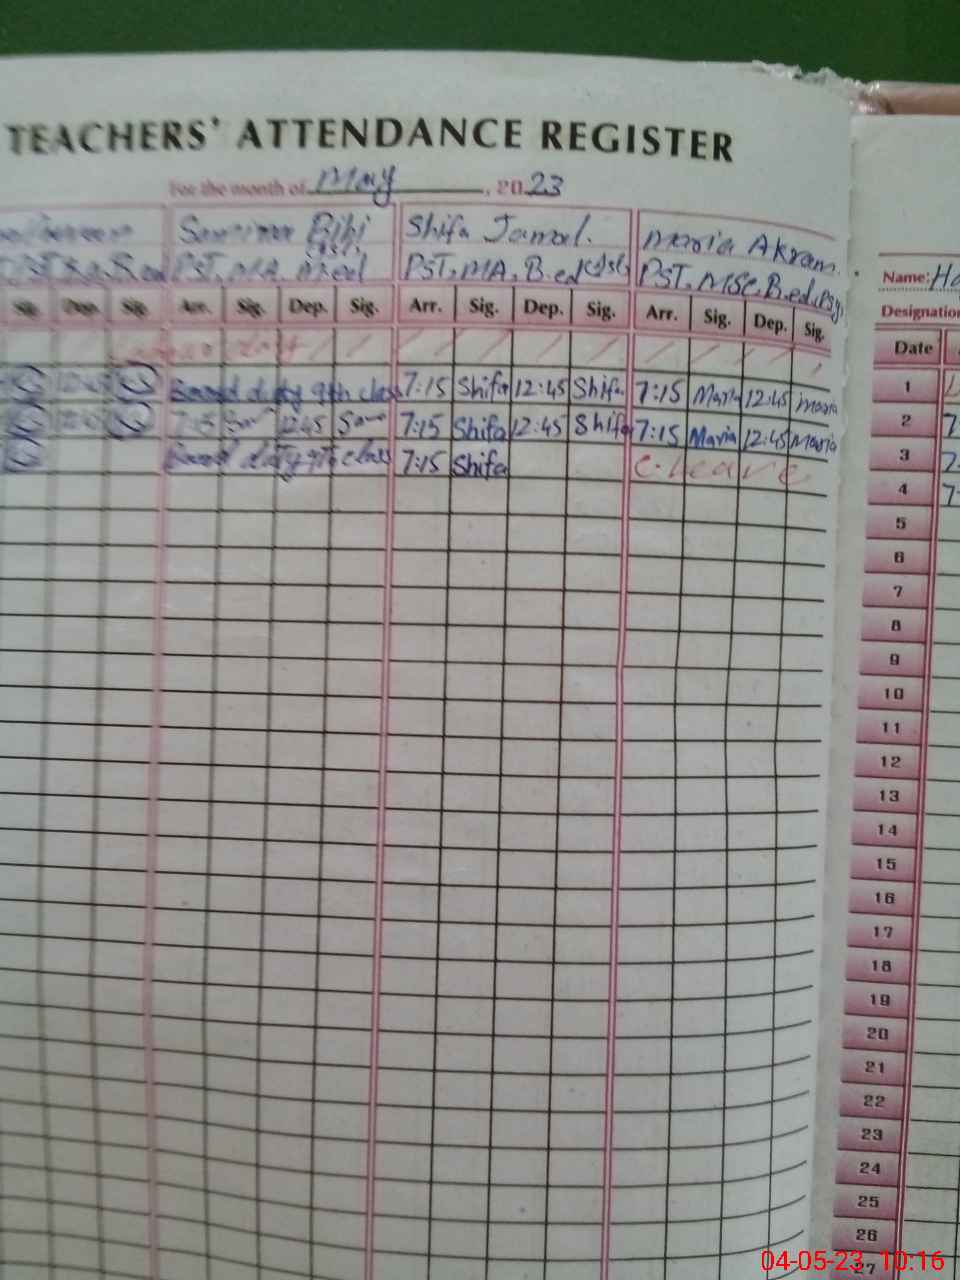 TEACHERS' ATTENDANCE REGISTER
For the month of May, 2023
Bibi Shifa Jamal. Maria Akram.
PST, MA, M.ed PST, MA, B.ed PST, MSC, B.ed,
Name:
Designation
Sig. Dep. Sig. Arr. Sig. Dep. Sig. Arr. Sig. Dep. Sig. Arr. Sig. Dep. Sig.
Date
12:45 Board duty 9th class 7:15 Shifa 12:45 Shifa 7:15 Maria 12:45 Maria
1
12:45 7:15 12:45 7:15 Shifa 12:45 Shifa 7:15 Maria 12:45 Maria
2
Board duty 9th class 7:15 Shifa C. Leave
3
4
5
6
7
8
9
10
11
12
13
14
15
16
17
18
19
20
21
22
23
24
25
26
27
04-05-23 10:16